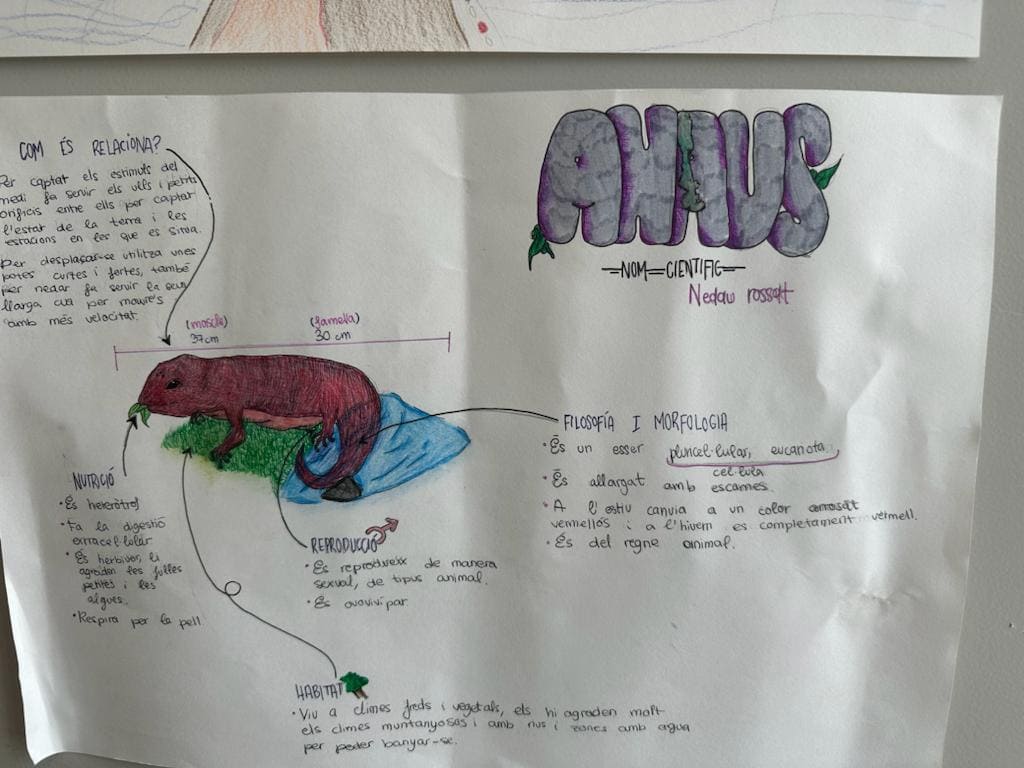 AHIUS
NOM CIENTIFIC
Nedau rossalt
COM ÉS RELACIONA?
Per captar els estimuls del
medi fa servir els ulls i petits
orificis entre ells per captar
l'estat de la terra i les
estacions en les que es situa.
Per desplaçar-se utilitza unes
potes curtes i fortes, també
per nedar fa servir la seva
llarga cua per moure's
amb més velocitat.
(mascle)
37cm
(famella)
30 cm
FILOSOFÍA I MORFOLOGIA
• És un esser pluricel·lular, eucariota.
cel·lula
• És allargat amb escames.
• A l'estiu canvia a un color
vermellós i a l'hivern es completament vermell.
• És del regne animal.
NUTRICIÓ
• És heteròtrof
• Fa la digestió
extracel·lular
• És herbívor, li
agraden les fulles
petites i les
algues.
• Respira per la pell
REPRODUCCIÓ
• Es reprodueix de manera
sexual, de tipus animal.
• És ovovivípar
HABITAT
• Viu a climes freds i vegetals, els hi agraden molt
els climes muntanyosas i amb rius i zones amb aigua
per poder banyar-se.